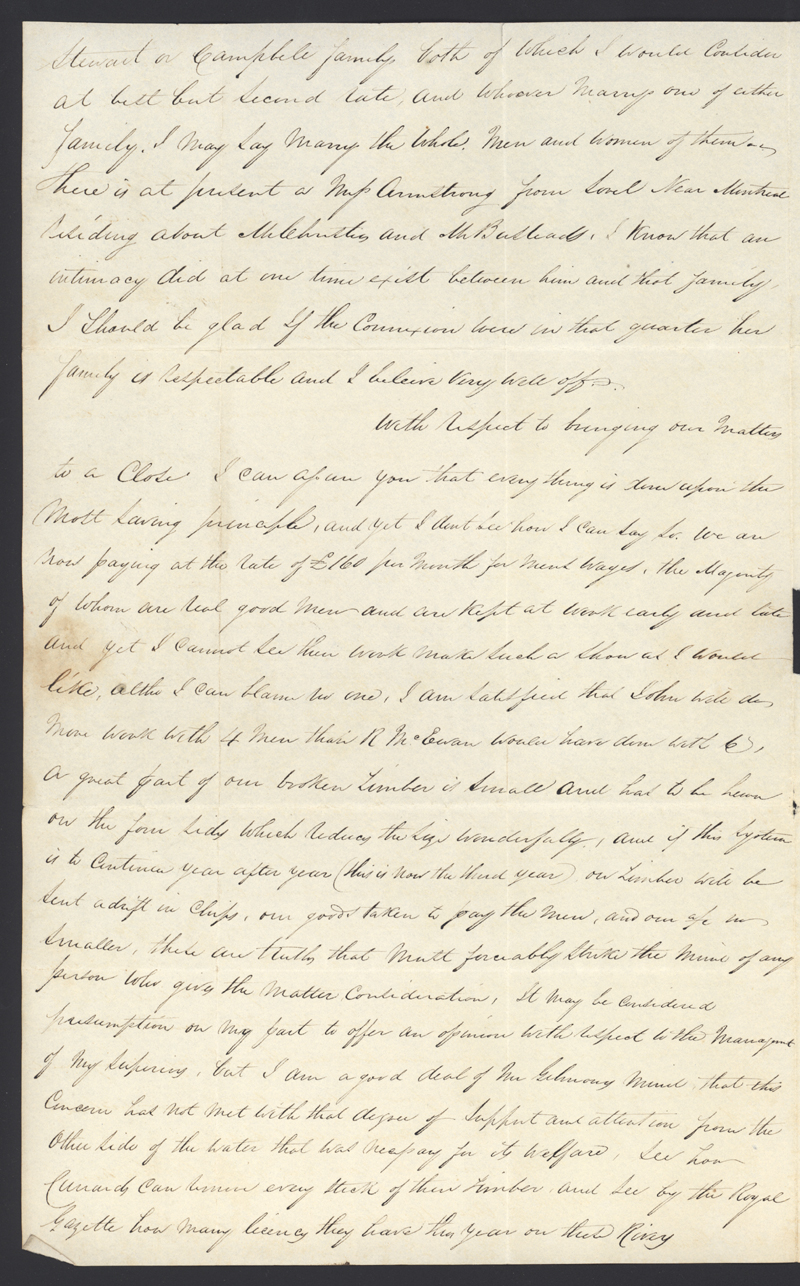 Stewart or Campbele family both of which I would Consider
at best but Second rate, and whoever Marrys one of either
family, I may say Marrys the whole. Men and women of them
there is at present a Miss Armstrong from Sorel Near Montreal
residing about and Mr Busteads. I Know that an
intimacy did at one time exist between him and that family,
I should be glad if the Connexion were in that quarter her
family is respectable and I beleive very well off.
With respect to bringing our Matters
to a Close I can assure you that every thing is done upon the
Most saving principle, and yet I dont see how I can say so. We are
now paying at the rate of £160 per Month for Mens Wages, the Majority
of whom are real good Men and are kept at work early and late
and yet I cannot see their work make such a show as I would
like, altho I can blame no one, I am satisfied that John will do
More work with 4 Men than R McEwan would have done with 6,
A great part of our broken Timber is small and has to be hewn
on the four sides which reduces the size wonderfully, and if this system
is to Continue year after year (this is now the third year) our Timber will be
sent adrift in Chips, our goods taken to pay the Men, and our no
smaller, these are truths that Must forceably strike the Mind of any
person who gives the Matter Consideration, It may be Considered
presumption on My part to offer an opinion with respect to the Managmt
of My superiors, but I am a good deal of Mr Gilmours Mind that this
Concern has not met with that degree of Support and attention from the
Other side of the water that was necessary for its welfare, See how
Cunards can every stick of their Timber and see by the Royal
Gazette how many licences they have this year on these Rivers